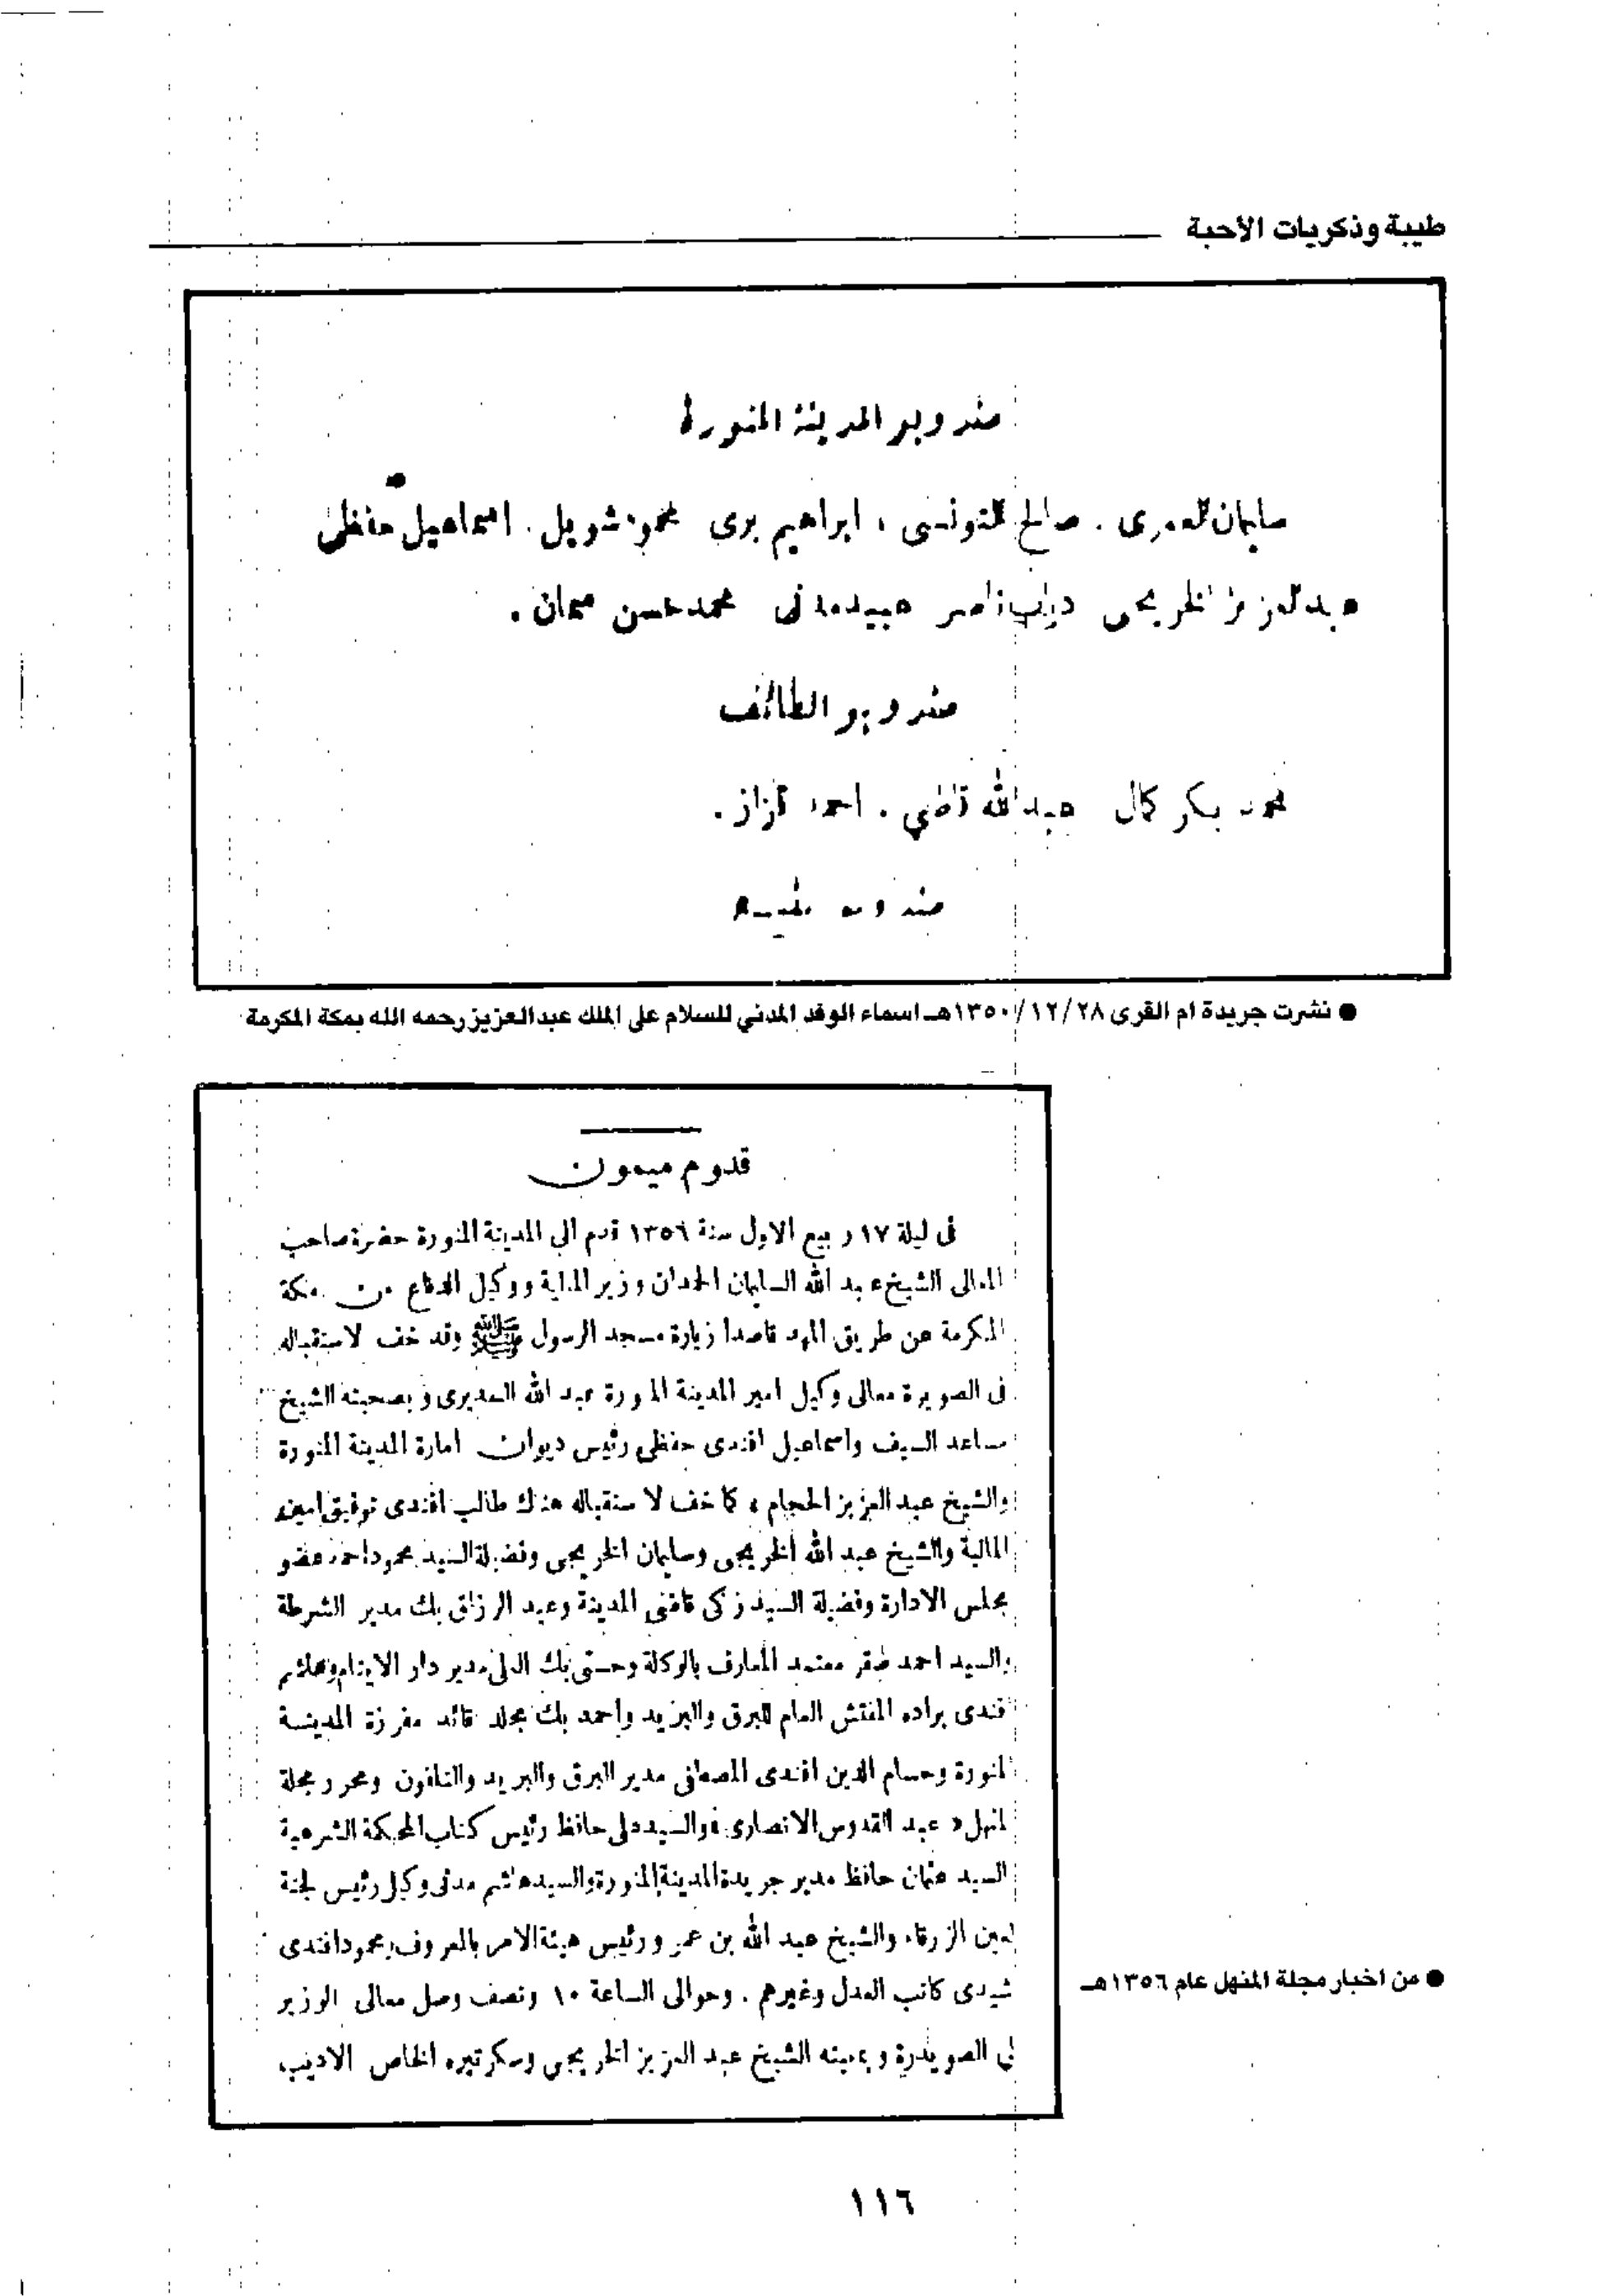 طيبة وذكريات الأحبة
مندوبو المدينة المنورة
سليمان العمرى . صالح التونسى ، ابراهيم برى محمود شويل . اسماعيل حفظى
عبد العزيز الخريجى دياب ناصر عبيد مدنى محمد حسن سمان .
مندوبو الطائف
محمد بكر كمال عبد الله قاضي . احمد قزاز .
مندوبو
● نشرت جريدة ام القرى ١٣٥٠/١٢/٢٨هـ اسماء الوفد المدني للسلام على الملك عبدالعزيز رحمه الله بمكة المكرمة
قدوم ميمون
فى ليلة ١٧ ربيع الاول سنة ١٣٥٦ قدم الى المدينة المنورة حضرة صاحب
المعالى الشيخ عبد الله السليمان الحمدان وزير المالية ووكيل الدفاع من مكة
المكرمة عن طريق المهد قاصدا زيارة مسجد الرسول ﷺ وقد خف لاستقباله
فى الصويدرة معالى وكيل امير المدينة المنورة عبد الله السديرى وبصحبته الشيخ
ساعد السيف واسماعيل افندى حفظى رئيس ديوان امارة المدينة المنورة
والشيخ عبد العزيز الحجام ، كما خف لاستقباله هناك طالب افندى توفيق امين
المالية والشيخ عبد الله الخريجى وسليمان الخريجى وفضيلة السيد محمود احمد عضو
مجلس الادارة وفضيلة السيد زكى قاضى المدينة وعبد الرزاق بك مدير الشرطة
والسيد احمد صقر معتمد المعارف بالوكالة وحسنى بك العلى مدير دار الايتام وهاشم
افندى براده المفتش العام للبرق والبريد واحمد بك مجلد قائد مفرزة المدينة
المنورة وحسام الدين افندى مدير البرق والبريد والتلفون ومحرر مجلة
المنهل « عبد القدوس الانصارى » والسيد على حافظ رئيس كتاب المحكمة الشرعية
السيد عثمان حافظ مدير جريدة المدينة المنورة والسيد هاشم مدنى وكيل رئيس لجنة
لعين الزرقاء والشيخ عبد الله بن عمر ورئيس هيئة الامر بالمعروف ومحمود افندى
شيدى كاتب العدل وغيرهم . وحوالى الساعة ١٠ ونصف وصل معالى الوزير
لى الصويدرة وبمعيته الشيخ عبد العزيز الخريجى وسكرتيره الخاص الاديب
● من اخبار مجلة المنهل عام ١٣٥٦هـ
١١٦